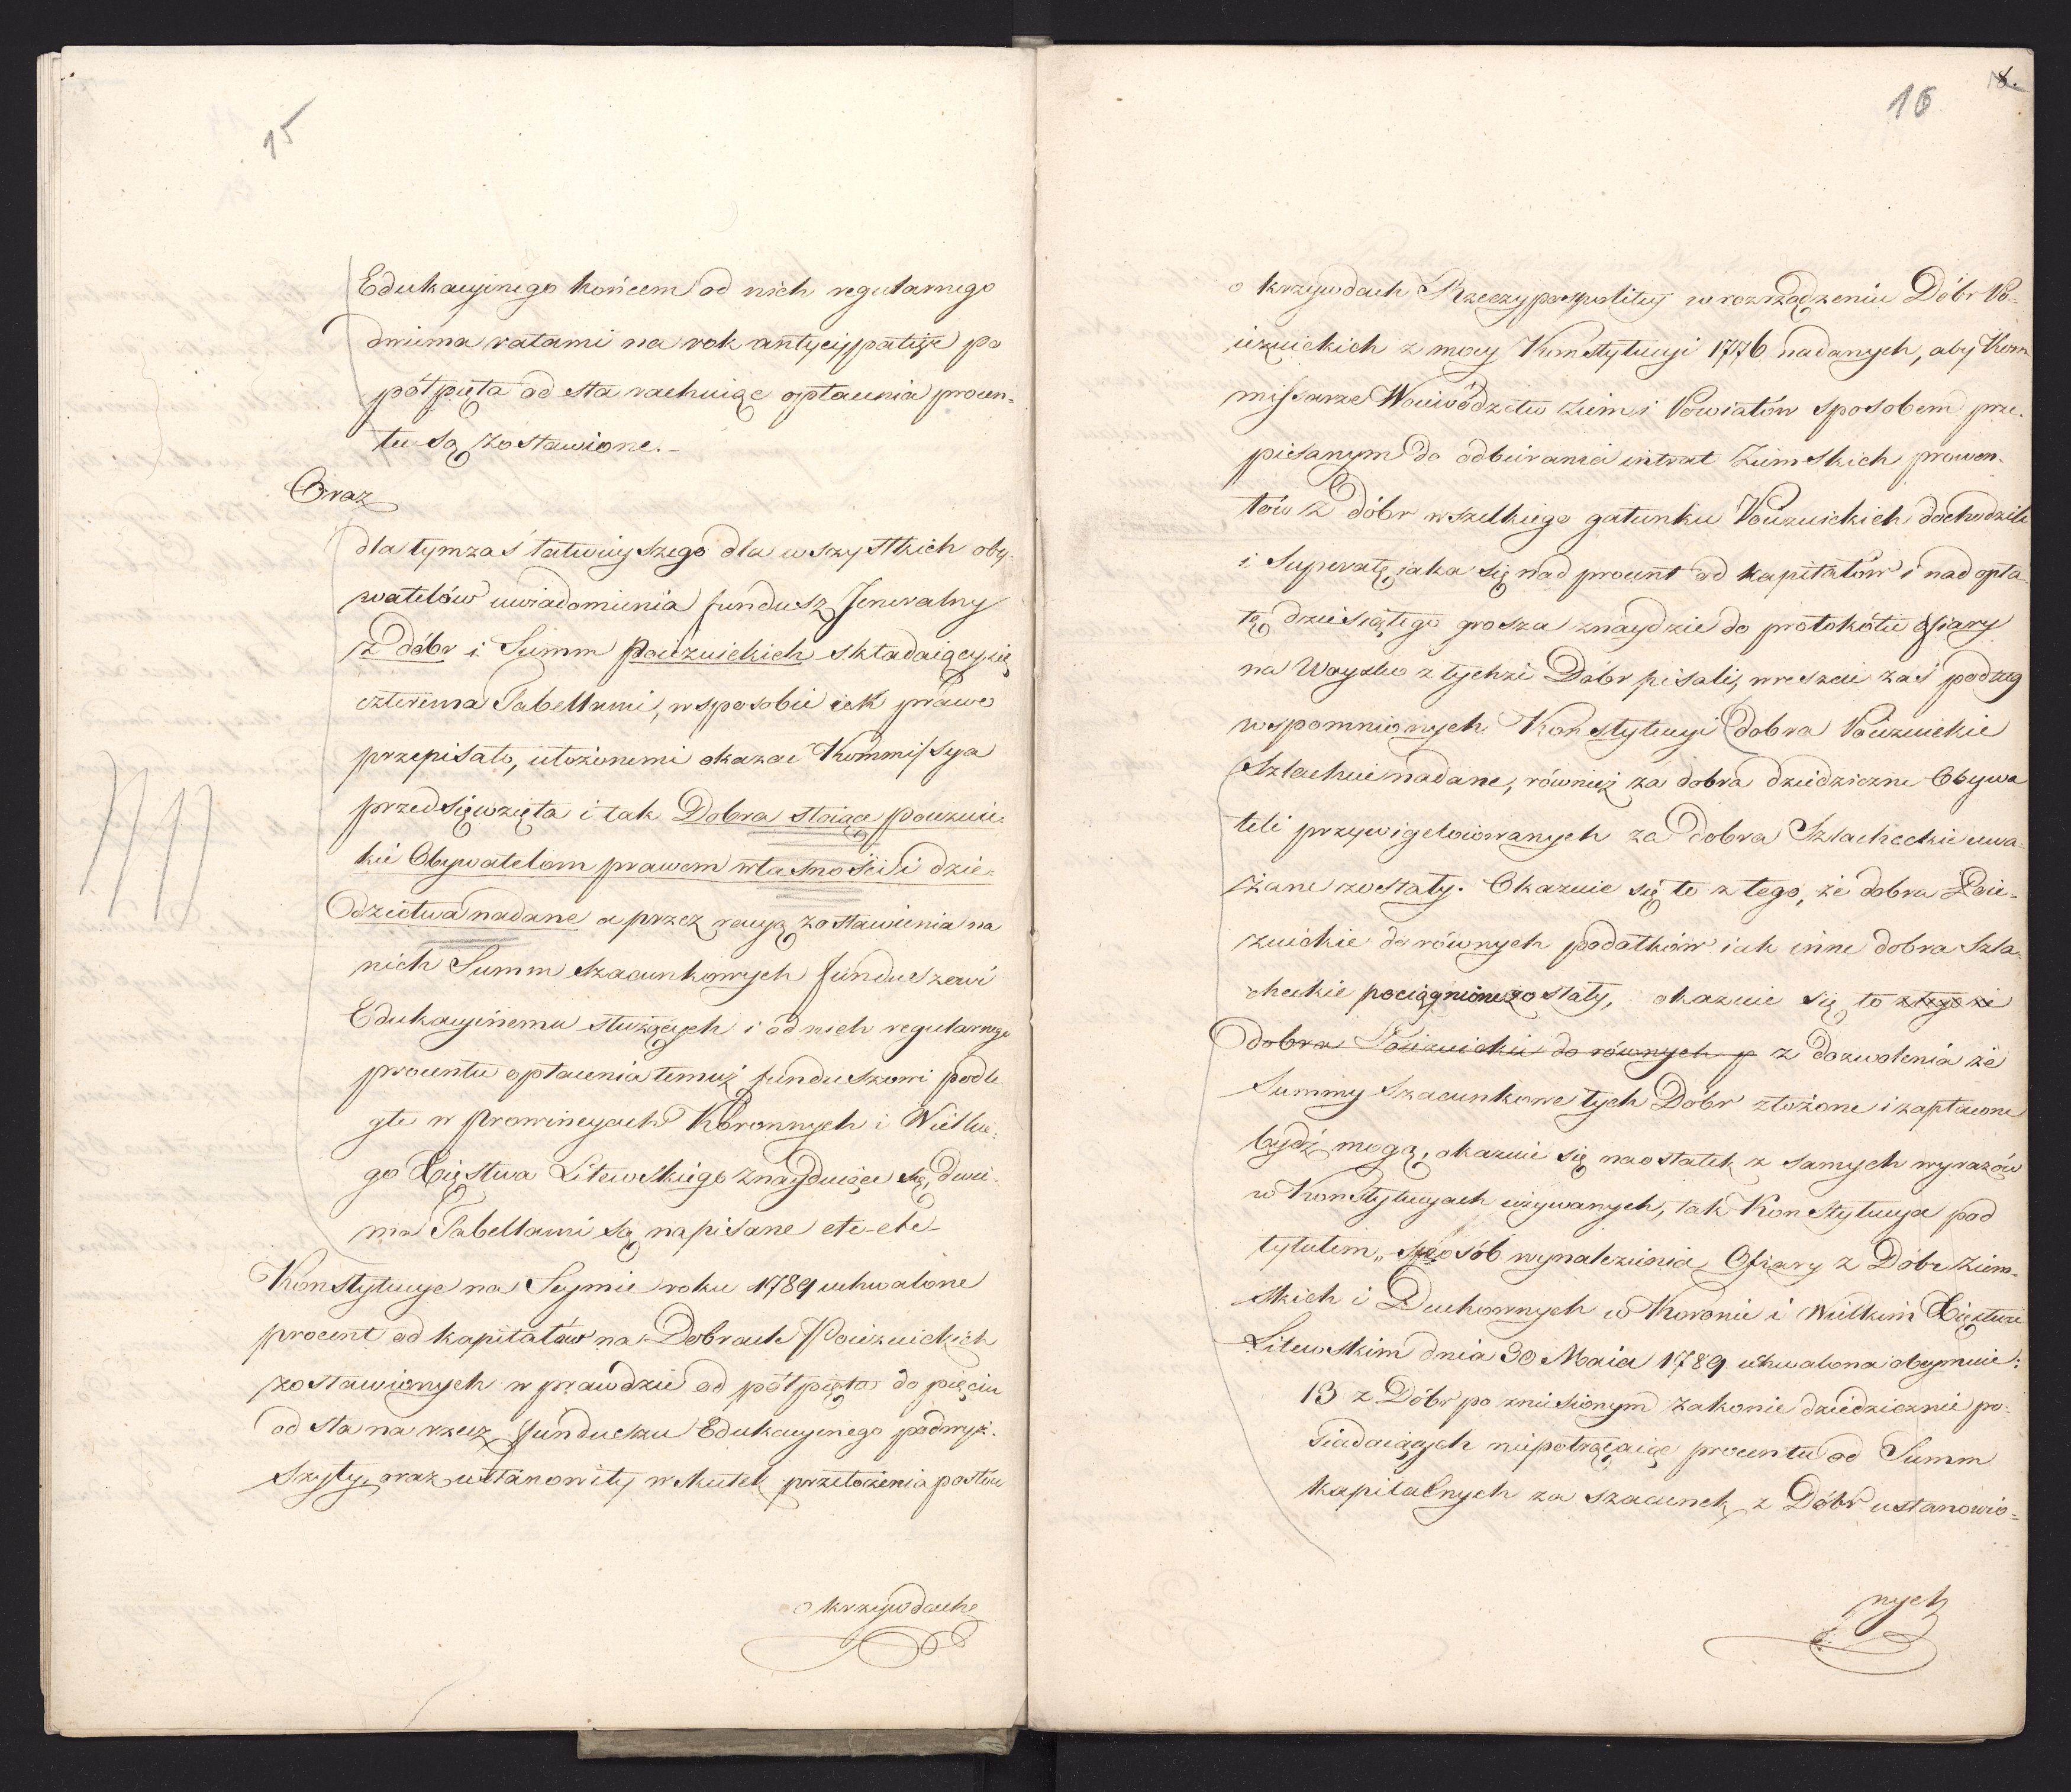 15
Edukacyjnego końcem od nich regularnego
dwiema ratami na rok antycyppatiże po
półpięta od sta rachuiąc opłacenia procen-
tu są zostawione.-
Oraz
dla tymzaś łatwieyszego dla wszystkich oby-
watelów uwiadomienia fundusz Jeneralny
z dóbr i Summ Poiezuickich składaiący się
czterema Tabellami, w sposobie iak prawo
przepisało, ułożonemi okazać Kommissya
przedsięwzięła i tak Dobra stoiące poiezuic-
kie Obywatelom prawem własności i dzie-
dzictwa nadane a przez racyą zostawienia na
nich Summ szacunkowych funduszowi
Edukacyinemu służących i od nich regularnego
procentu opłacenia temuż funduszowi podle-
głe w Prowincyach Koronnych i Wielkie-
go Xięstwa Litewskiego znayduiące się, dwie-
ma Tabellami są napisane etc-etc-
Konstytucye na Seymie roku 1789 uchwalone
procent od kapitałów na Dobrach Poiezuickich
zostawionych w prawdzie od półpięta do pięciu
od sta na rzecz funduszu Edukacyinego podwyż-
szyły, oraz ustanowiły w skutek przełożenia posłów
o krzywdach
8.
16
o krzywdach Rzeczypospolitey w rozrządzeniu Dóbr Po-
iezuickich z mocy Konstytucyi 1776 nadanych, aby Kom
missarze Woiewództw Ziem i Powiatów sposobem prze-
pisanym do odbierania intrat Ziemskich prowen-
tów z dóbr wszelkiego gatunku Poiezuickich dochodzili
i Superatę, iaka się nad procent od kapitałów i nad opła-
tę dziesiątego grosza znaydzie do protokółu Ofiary
na Woysko z tychże Dóbr pisali, wreszcie zaś podług
wspomnionych Konstytucyi dobra Poiezuickie
Szlachcie nadane, również za dobra dziedziczne Obywa
teli przywigelowanych za dobra Szlacheckie uwa-
żane zostały. Okazuie się to z tego, że dobra Poie-
zuickie do równych podatków iak inne dobra Szla-
checkie pociągnione zostały, okazuie się to z tego że
dobra Poiezuickie do równych p z dozwolenia że
Summy Szacunkowe tych Dóbr złożone i zapłacone
bydź mogą, okazuie się naostatek z samych wyrazów
w Konstytucyach używanych, tak Konstytucya pod
tytułem „ sposób wynalezienia Ofiary z Dóbr Ziem-
skich i Duchownych w Koronie i Wielkim Xięstwie
Litewskim dnia 30 Maia 1789 uchwalona obeymuie:
13 z Dóbr po zniesionym zakonie dziedzicznie po-
siadaiących niepotrącaiąc procentu od Summ
kapitalnych za szacunek z Dóbr ustanowio-
nych